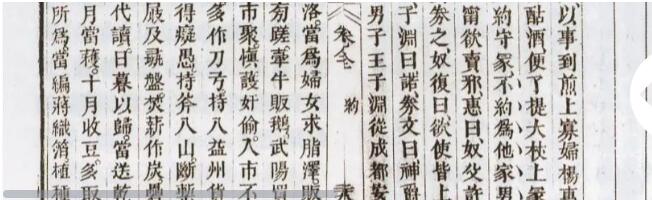 以事到煎上寡婦楊惠
酤酒便了提大杖上冢
約守冢不約爲他家男
甯欲賣邪惠曰奴父許
券之奴復曰欲使皆上
子淵曰諾券文曰神爵
男子王子淵從成都安
卷全 約
洛當爲婦女求脂澤販
芻蹉牽牛販鵝武陽買
市聚愼護奸偷入市不
多作刀弓持入益州貨
得癡愚持斧入山斷槧
屐及彘盤焚薪作炭礨
代讀日暮以歸當送乾
月當穫十月收豆多取
所爲當編蔣織箔植種